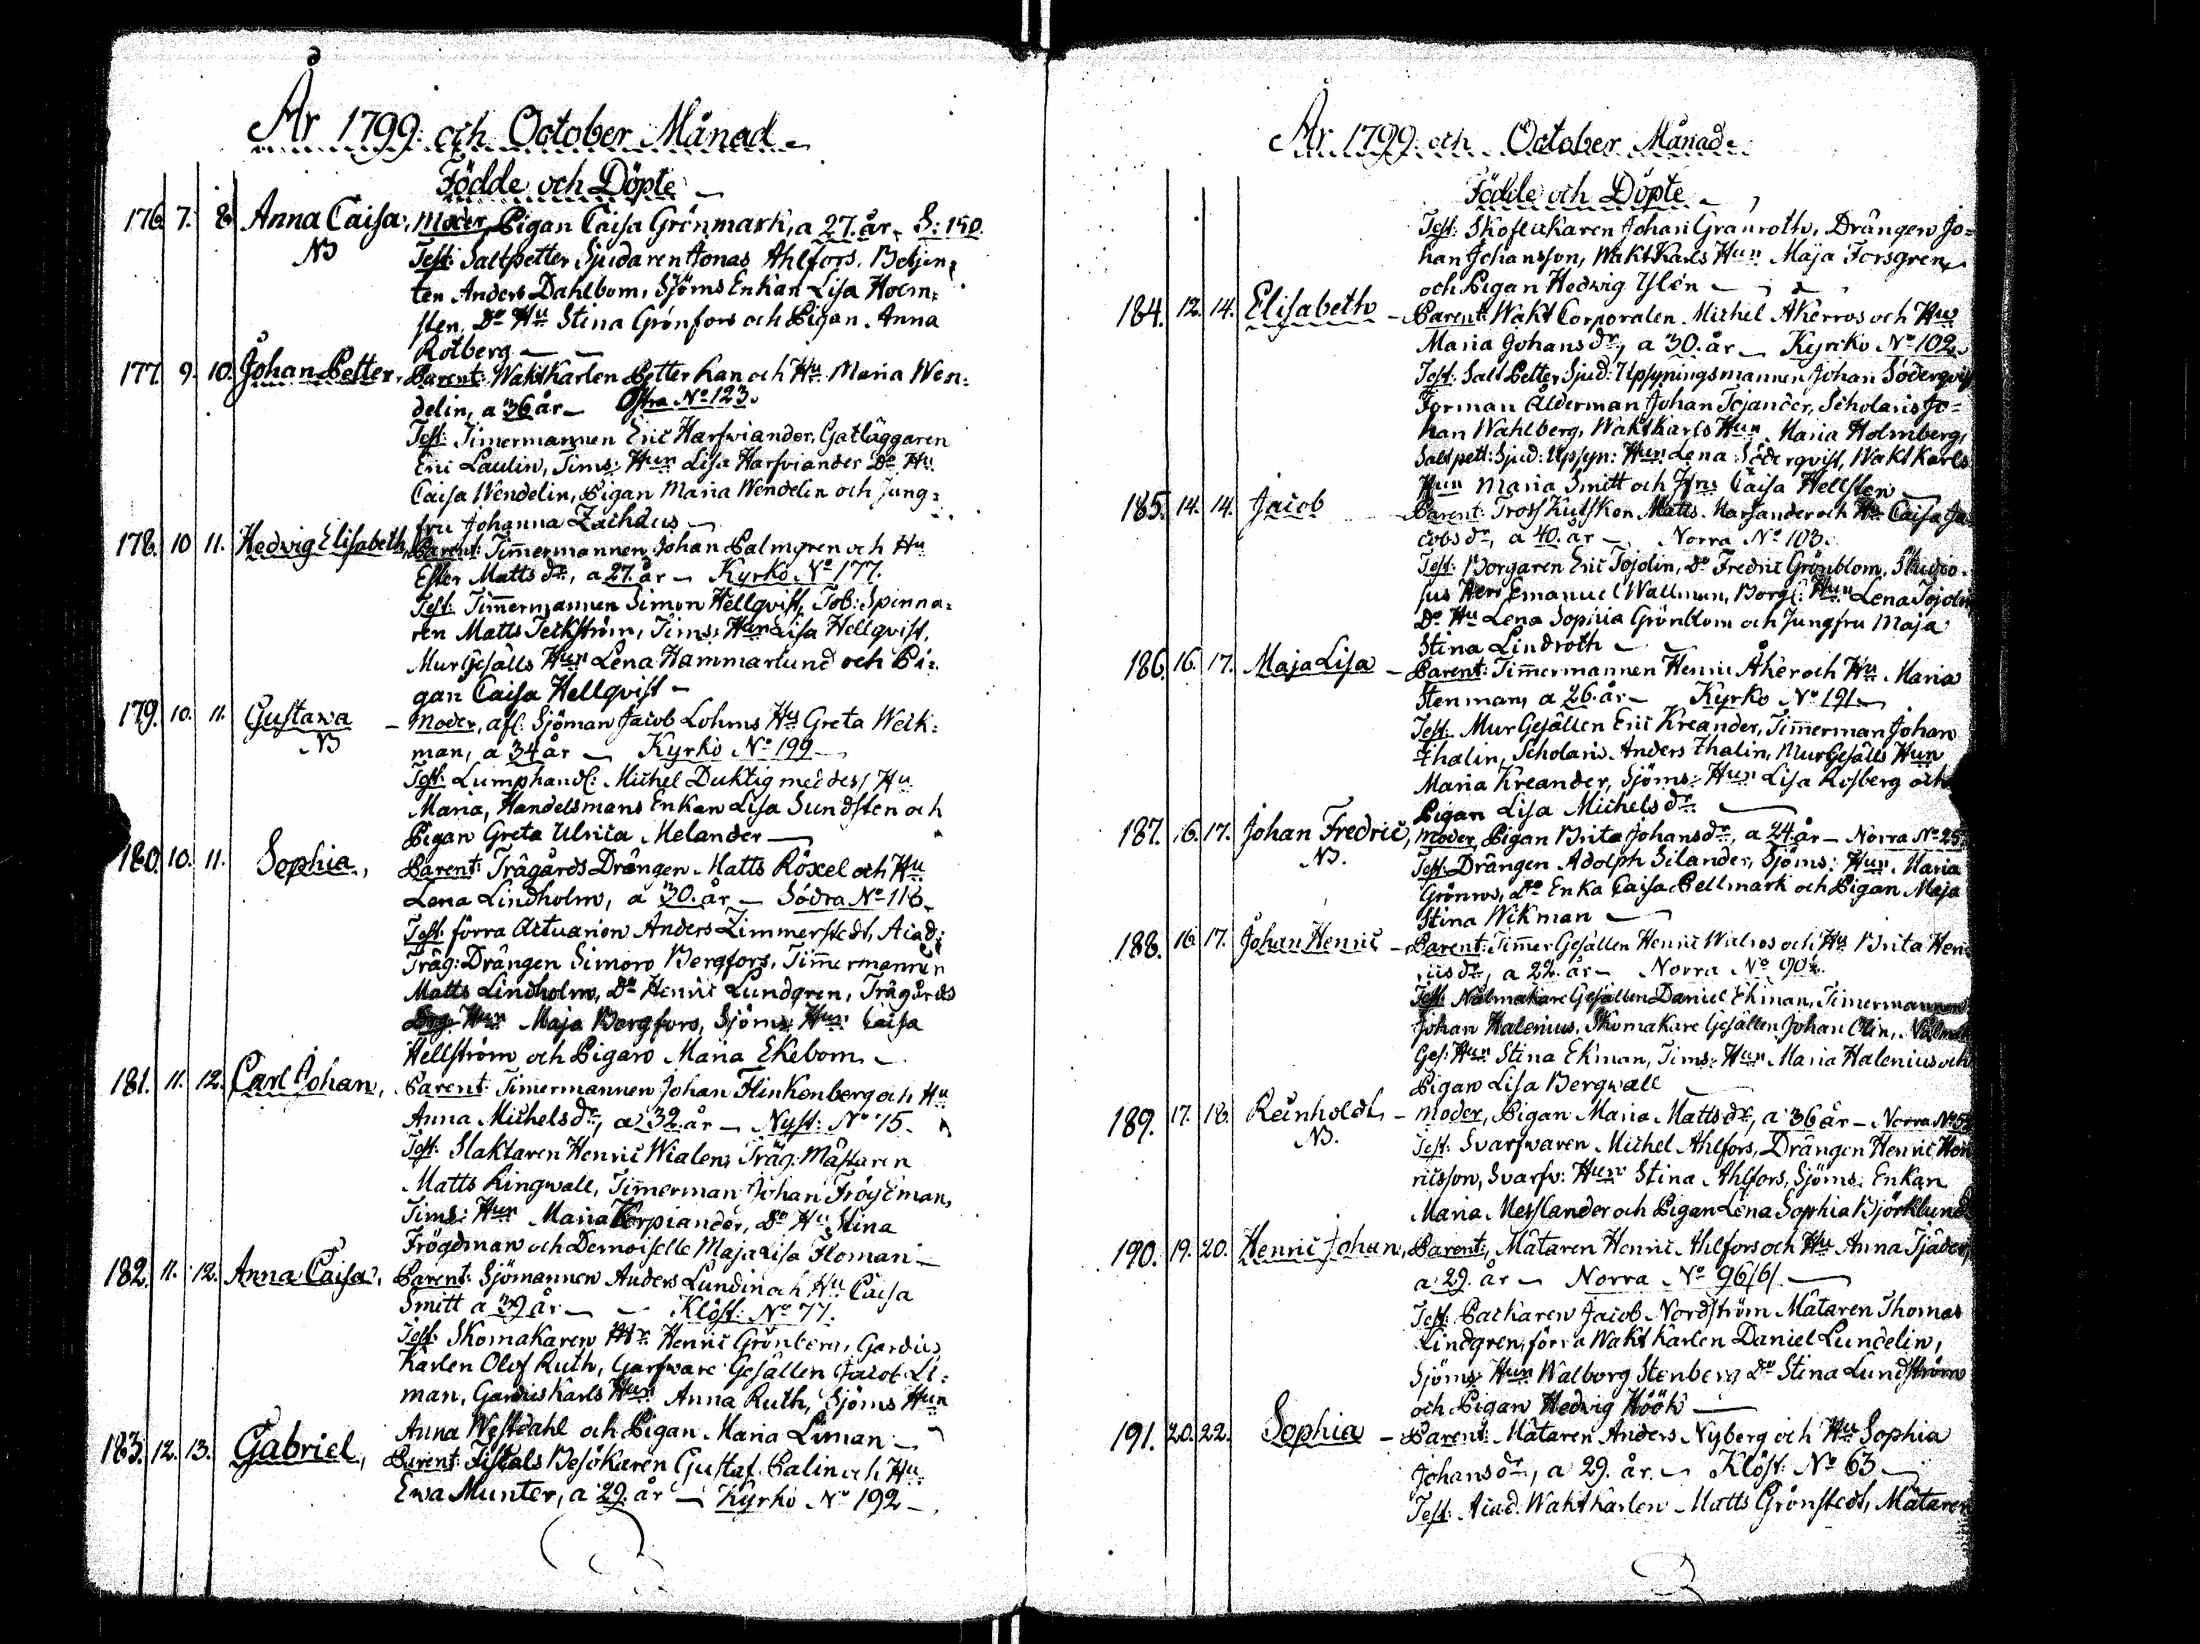 År 1799. och October Månad
Födde och Döpte
176. 7. 8. Anna Caisa, Moder, Pigan Caisa Grönmark, a 27. år. S: 150.
NB Test: Saltpetter Sjudaren Jonas Ahlfors, Betjen=
ten Anders Dahlbom, Sjöms Enkan Lisa Holm=
sten, Do Hu Stina Grönfors och Pigan Anna
Rotberg
177. 9. 10. Johan Petter, Parent: Waktkarlen Petter Kan och Hu Maria Wen=
delin, a 36 år Östra No 123.
Test: Timermannen Eric Harfviander, Gatläggaren
Eric Laulin, Tims: Hun Lisa Harfviander Do Hu
Caisa Wendelin, Pigan Maria Wendelin och Jung=
fru Johanna Zachæus
178. 10 11. Hedvig Elisabeth, Parent: Timermannen Johan Palmgren och Hu
Ester Matts dr, a 27. år Kyrko No 177.
Test: Timmermannen Simon Hellqvist, Tob: Spinna=
ren Matts Teckström, Tims: Hun Lisa Hellqvist,
Mur Gesälls Hun Lena Hammarlund och Pi=
gan Caisa Hellqvist
179. 10. 11. Gustava Moder, afl. Sjöman Jacob Lohms Hu Greta Weck=
NB man, a 34 år Kyrko No 199
Test: Lumphandl: Michel Duktig med dess Hu
Maria, Handelsmans Enkan Lisa Sundsten och
Pigan Greta Ulrica Melander
180. 10. 11. Sophia, Parent: Trägårds Drängen Matts Röxel och Hu
Lena Lindholm, a 30. år Södra No 116.
Test: förra Actuarien Anders Zimmerstedt, Acad:
Träg: Drängen Simon Bergfors, Timmermannen
Matts Lindholm, Do Henric Lundgren, Trägårds
Drg: Hun Maja Bergfors, Sjöms: Hun Caisa
Hellström och Pigan Maria Ekebom
181. 11. 12. Carl Johan, Parent: Timermannen Johan Flinkenberg och Hu
Anna Michels dr, a 32. år Nyst: No 15.
Test: Slaktaren Henric Wialen, Träg: Mästaren
Matts Ringwall, Timmerman Johan Frögdman,
Tims: Hun Maria Korpiander, Do Hu Stina
Frögdman och Demoiselle Maja Lisa Floman
182. 11. 12. Anna Caisa, Parent: Sjömannen Anders Lundin och Hu Caisa
Smitt a 39 år Klöst: No 77.
Test: Skomakaren Mr Henric Grönberg, Gardies
Karlen Olof Ruth, Garfvare Gesällen Jacob Li=
man, Gardieskarls Hun Anna Ruth, Sjöms Hun
Anna Westdahl och Pigan Maria Liman
183. 12. 13. Gabriel, Parent: Fiskals Besökaren Gustaf Palin och Hu
Ewa Munter, a 29. år Kyrko No 192
År 1799. och October Månad
Födde och Döpte
Test: Skoflickaren Johan Granroth, Drängen Jo=
han Johansson, Waktkarls Hun Maja Forsgren
och Pigan Hedwig Uslén
184. 12. 14. Elisabeth Parent: Wakt Corporalen Michel Åkerros och Hu
Maria Johans dr, a 30. år Kyrko No 102.
Test: Salt Petter Sjud: Upsyningsmannen Johan Söderqvist
Forman Ålderman Johan Tojander, Scholaris Jo=
han Wahlberg, Waktkarls Hun Maria Holmberg,
Saltpett: Sjud: Upsyn: Hun Lena Söderqvist, Wakt Karls
Hun Maria Smitt och Hu Caisa Hellsten
185. 14. 14. Jacob Parent: Tross Kusken Matts Harsander och Hu Caisa Ja
cobs dr, a 40. år Norra No 103.
Test: Borgaren Eric Tojolin, Do Fredric Grönblom, Studio=
sus Herr Emanuel Wallman, Borg: Hun Lena Tojolin
Do Hu Lena Sophia Grönblom och Jungfru Maja
Stina Lindroth
186. 16. 17. Maja Lisa Parent: Timmermannen Henric Åker och Hu Maria
Stenman, a 26. år Kyrko No 191
Test: Mur Gesällen Eric Kreander, Timmerman Johan
Thalin, Scholaris Anders Thalin, Mur Gesälls Hun
Maria Kreander, Sjöms: Hun Lisa Rosberg och
Pigan Lisa Michels dr
187. 16. 17. Johan Fredric, Moder, Pigan Brita Johans dr, a 24. år Norra No 25
NB. Test: Drängen Adolph Silander, Sjöms: Hun Maria
Grönros, Do Enka Caisa Bellmark och Pigan Maja
Stina Wikman
188. 16. 17. Johan Henric Parent: Timmer Gesällen Henric Widros och Hu Brita Hen
rics dr, a 22. år Norra No 90
Test: Nålmakare Gesällen Daniel Ekman, Timermannen
Johan Halenius, Skomakare Gesällen Johan Olin, Nålmak
Ges: Hun Stina Ekman, Tims: Hun Maria Halenius och
Pigan Lisa Bergwall
189. 17. 18. Reinholdt Moder, Pigan Maria Matts dr, a 36 år Norra No 52
NB. Test: Svarfwaren Michel Ahlfors, Drängen Henric Hen
ricsson, Svarfv: Hun Stina Ahlfors, Sjöms: Enkan
Maria Messlander och Pigan Lena Sophia Björklund
190. 19. 20. Henric Johan, Parent: Mätaren Henric Ahlfors och Hu Anna Tjäder,
a 29. år Norra No 96/6/.
Test: Packaren Jacob Nordström Mätaren Thomas
Lindgren, förra Wakt karlen Daniel Lundelin,
Sjöms: Hun Walborg Stenberg Do Stina Lundström
och Pigan Hedvig Höök
191. 20. 22. Sophia Parent: Mätaren Anders Nyberg och Hu Sophia
Johans dr, a 29. år. Klöst: No 63
Test: Acad. Waktkarlen Matts Grönstedt, Mätaren